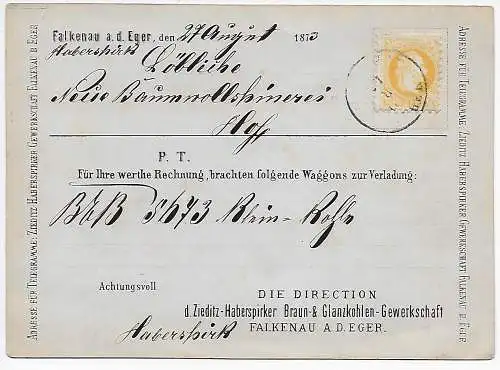 Falkenau a.d. Eger, den 27 August 1873
Haberspirk
Löbliche
Neue Baumwollspinnerei
Hof
P. T.
Für Ihre werthe Rechnung, brachten folgende Waggons zur Verladung:
BEB 5673 Klein-Kohle
Achtungsvoll
DIE DIRECTION
d. Zieditz-Haberspirker Braun-& Glanzkohlen-Gewerkschaft
FALKENAU A.D. EGER.
Haberspirk
ADRESSE FÜR TELEGRAMME: ZIEDITZ HABERSPIRKER GEWERKSCHAFT FALKENAU B EGER
ADRESSE FÜR TELEGRAMME: ZIEDITZ HABERSPIRKER GEWERKSCHAFT FALKENAU B EGER